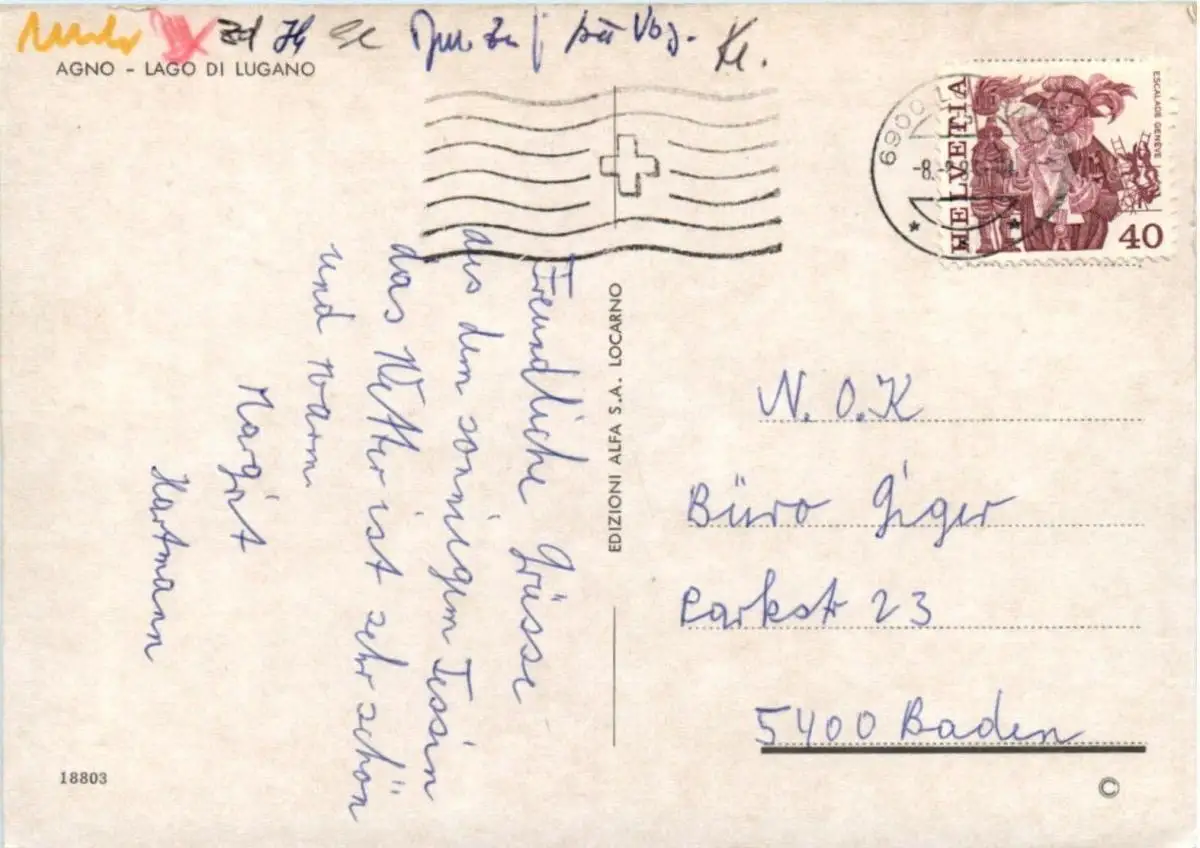 AGNO - LAGO DI LUGANO
HELVETIA
ESCALADE GENÈVE
40
6900
Freundliche Grüsse
aus dem sonnigem Tessin
das Wetter ist sehr schön
und warm
Margrit
Hartmann
EDIZIONI ALFA S.A. LOCARNO
N.O.K
Büro Giger
Parkstr 23
5400 Baden
18803
©